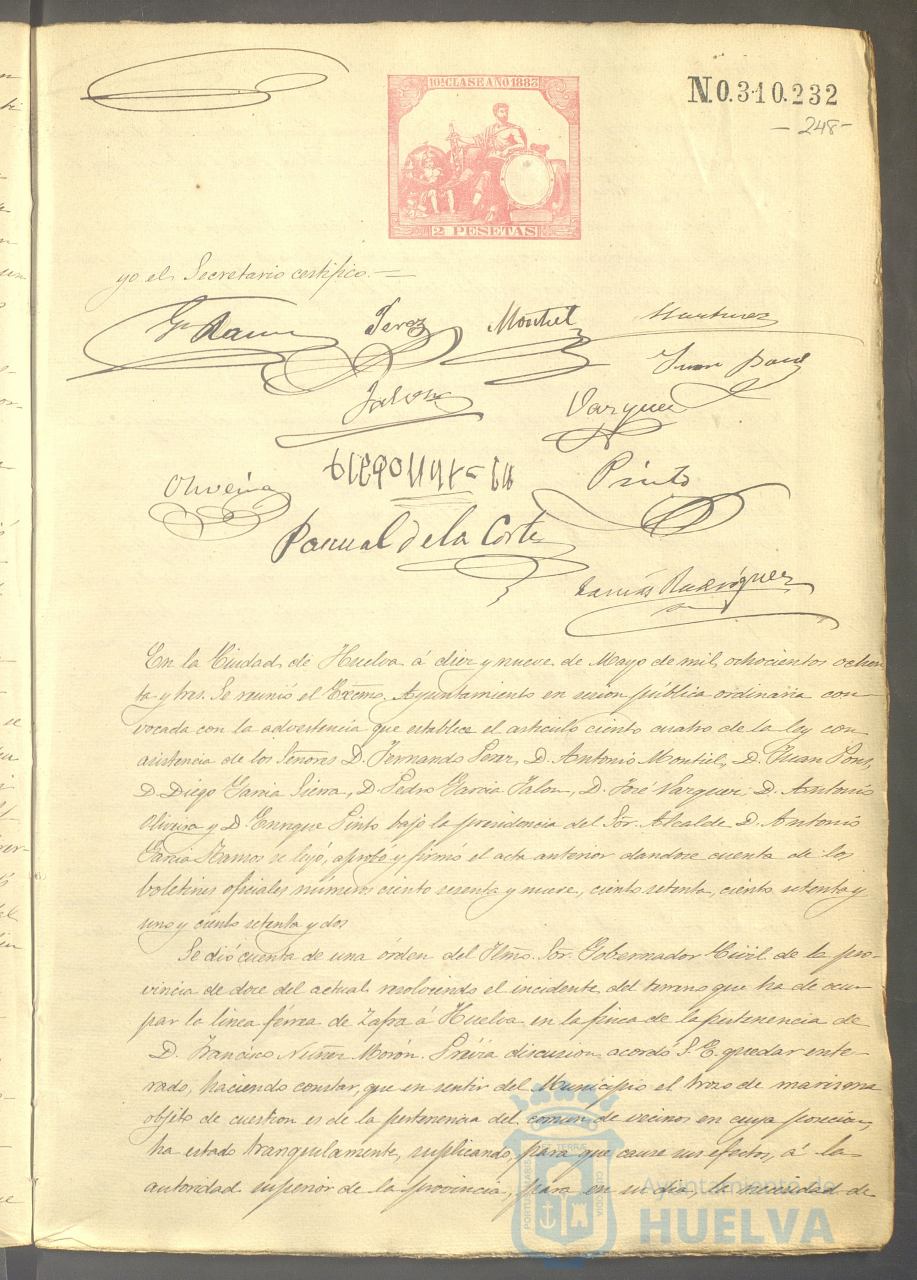 10ª CLASE AÑO 1883
2 PESETAS
N.0.310.232
-248-
yo el Secretario certifico.=
Perez Montiel Martinez
Juan pons
Jalon Vazquez
Oliveira Pinto
Pascual de la Corte
Tomás Rodriguez
En la Ciudad de Huelva á diez y nueve de Mayo de mil ochocientos ochen
ta y tres. Se reunió el Excmo. Ayuntamiento en sesion pública ordinaria con
vocada con la advertencia que establece el articulo ciento cuatro de la ley con
asistencia de los Señores D. Fernando Perez, D. Antonio Montiel, D. Juan Pons,
D. Diego Garcia Sierra, D. Pedro Garcia Jalon, D. José Vazquez, D. Antonio
Oliveira y D. Enrique Pinto bajo la presidencia del Sor. Alcalde D. Antonio
Garcia Ramos se leyó, aprobó y firmó el acta anterior dandose cuenta de los
boletines oficiales numeros ciento sesenta y nueve, ciento setenta, ciento setenta y
uno y ciento setenta y dos
Se dió cuenta de una órden del Iltmo. Sor. Gobernador Civil de la pro-
vincia de doce del actual resolviendo el incidente del terreno que ha de ocu
par la linea férrea de Zafra á Huelva en la finca de la pertenencia de
D. Francisco Nuñez Morón. Prévia discusion acordó S.E. quedar ente-
rado, haciendo constar, que en sentir del Municipio el trozo de marisma
objeto de cuestion es de la pertenencia del comun de vecinos en cuya posecion
ha estado tranquilamente, suplicando, para que cause sus efectos, á la
autoridad superior de la provincia, para en su dia, la necesidad de
Ayuntamiento de
HUELVA